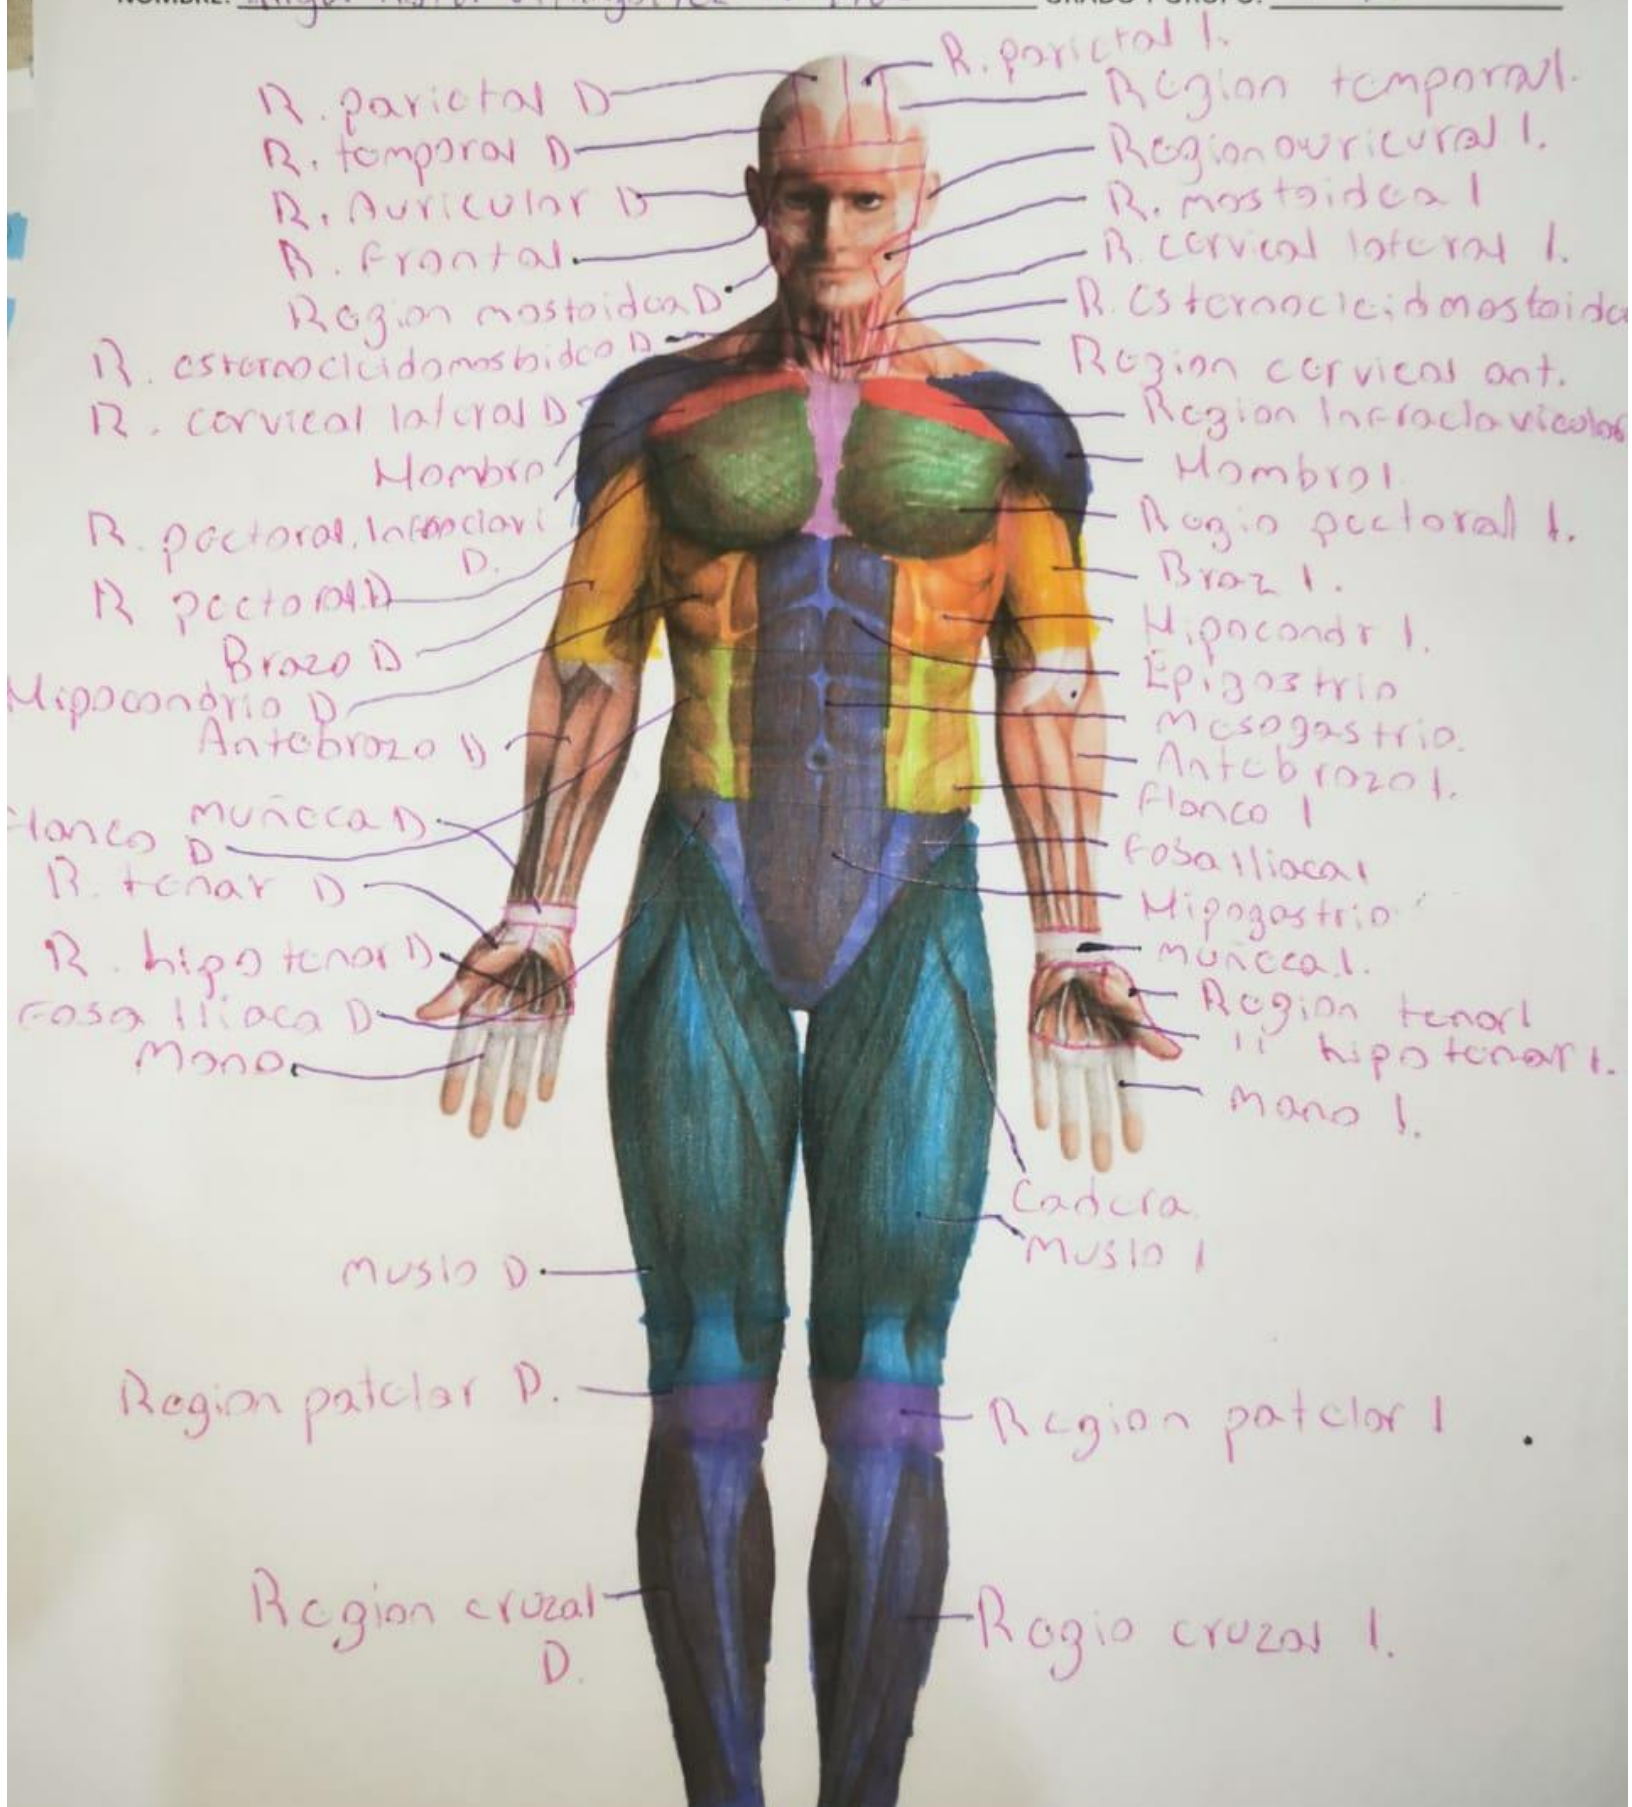 NOMBRE:
GRADO Y GRUPO:
R. parietal D
R. temporal D
R. Auricular D
R. Frontal
Region mastoidea D
R. esternocleidomastoideo D
R. cervical lateral D
Hombro
R. pectoral. Infraclavi
D.
R pectoral.D
Brazo D
Hipocondrio D
Antebrazo D
muñeca D
Flanco D
R. tenar D
R. hipotenar D
Fosa Iliaca D
Mano
muslo D
Region patelar D.
Region cruzal
D.
R. parietal I.
Region temporal.
Region auricural I.
R. mastoidea I
R. cervical lateral I.
R. Esternocleidomastoidea
Region cervical ant.
Region Infraclavicular
Hombro I.
Regio pectoral I.
Braz I.
Hipocondr I.
Epigastrio
Mesogastrio.
Antebrazo I.
Flanco I
Fosa Iliaca I
Hipogastrio
muñeca I.
Region tenar I
" hipotenar I.
Mano I.
Cadera
Muslo I
Region patelar I
Regio cruzal I.